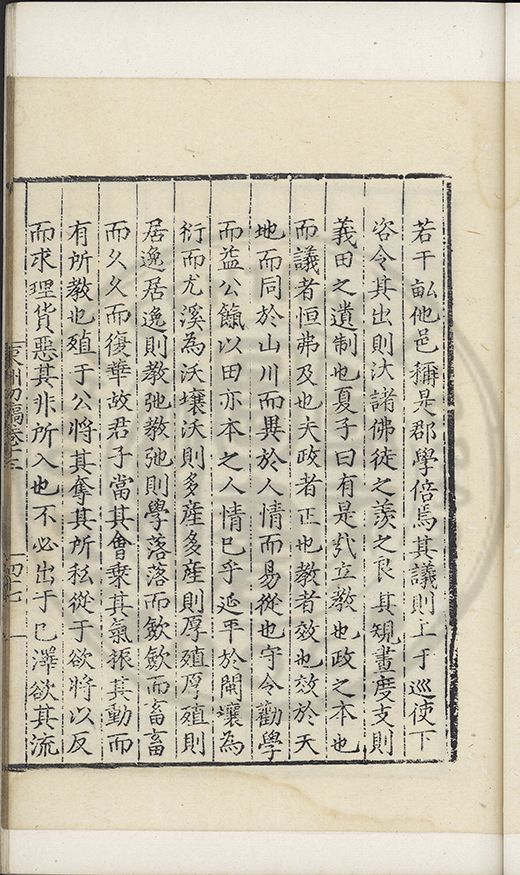 若干畝他邑稱是郡學倍焉其議則上于巡使下
咨令其出則汰諸佛徒之羨之良其規畫度支則
義田之遺制也夏子曰有是哉立教也政之本也
而議者恒弗及也夫政者正也教者效也效於天
地而同於山川而異於人情而易從也守令勸學
而益公餼以田亦本之人情已乎延平於閩壤為
衍而尤溪為沃壤沃則多産多産則厚殖厚殖則
居逸居逸則教弛教弛則學落落而斂斂而畜畜
而久久而復華故君子當其會乗其氣振其動而
有所教也殖于公將其奪其所私從于欲將以反
而求理貨惡其非所入也不必出于已澤欲其流
東洲初稿卷十三
四七